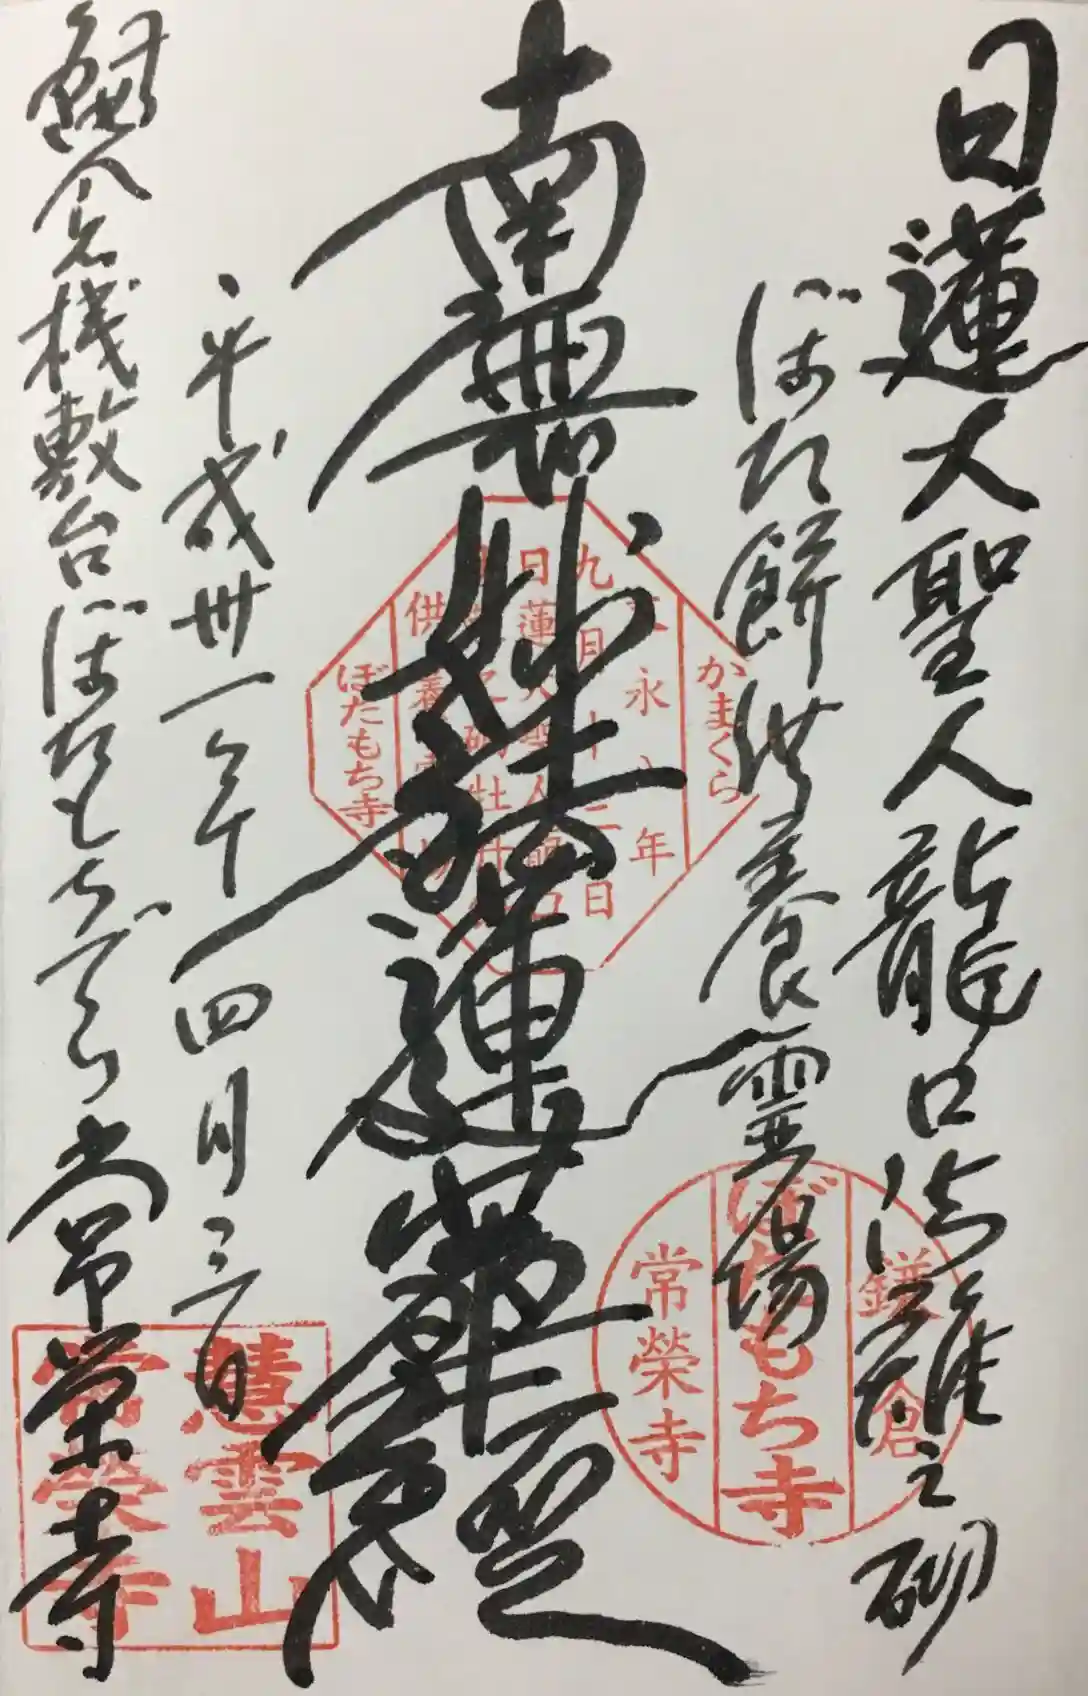 日蓮大聖人龍口法難之砌
ぼた餅供養霊場
南無妙法蓮華経
平成卅一年四月三日
鎌倉棧敷台ぼたもちでら常栄寺
かまくら
永八年
九月十二日
日蓮
供養
ぼたもち寺
鎌倉
ぼたもち寺
常榮寺
慧雲山
常榮寺